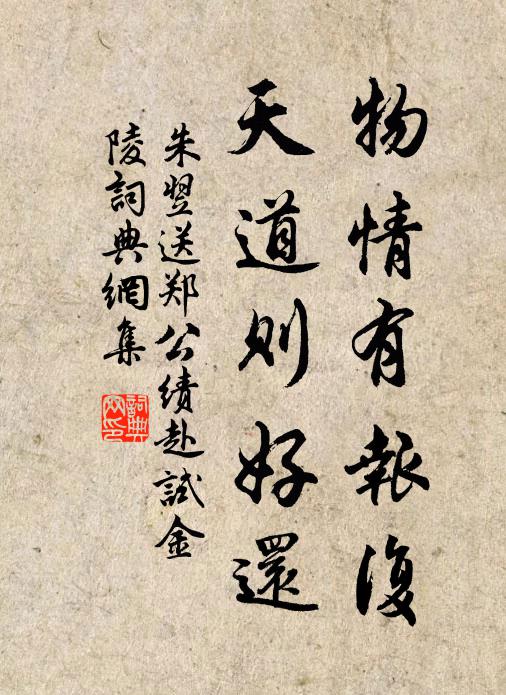 物情有報復
天道則好還
朱翌送郑公績赴試金
陵詞典網集
詞典
网印